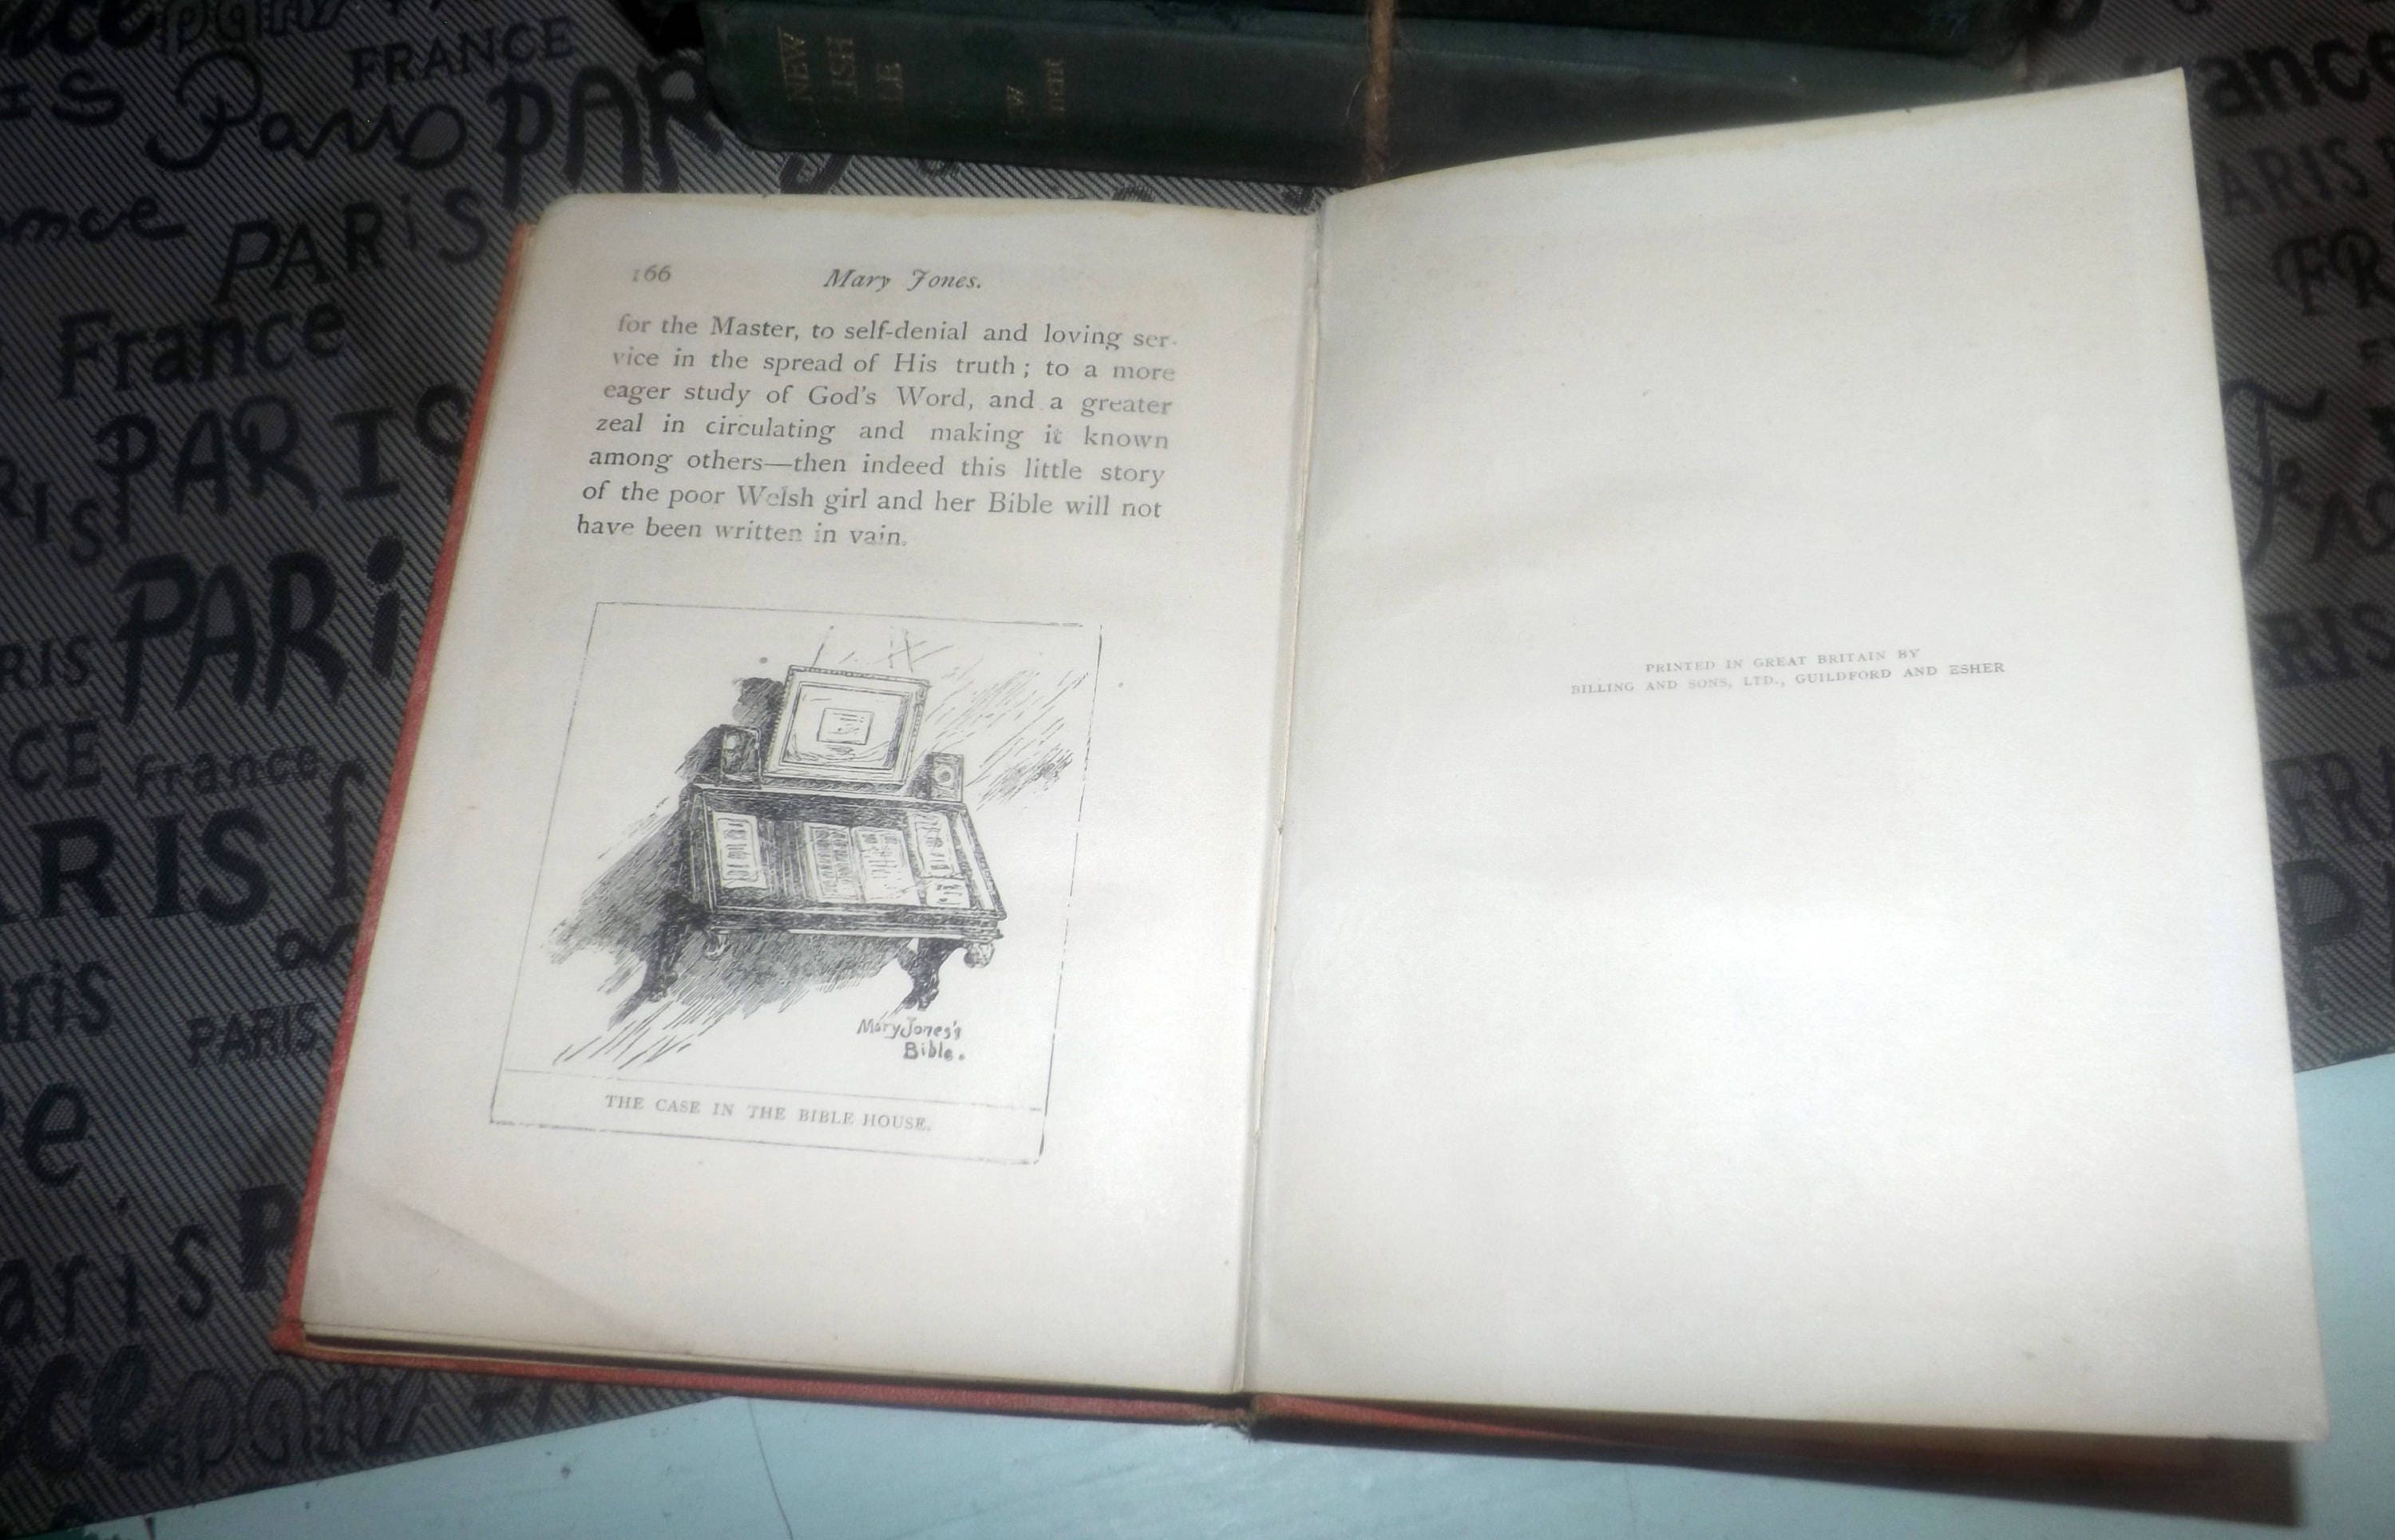 166 Mary Jones.
for the Master, to self-denial and loving ser-
vice in the spread of His truth; to a more
eager study of God's Word, and a greater
zeal in circulating and making it known
among others—then indeed this little story
of the poor Welsh girl and her Bible will not
have been written in vain.
Mary Jones's
Bible.
THE CASE IN THE BIBLE HOUSE.
PRINTED IN GREAT BRITAIN BY
BILLING AND SONS, LTD., GUILDFORD AND ESHER
NEW
FRANCE
Paris
PARIS
France
PARIS
France
PARIS
PARIS